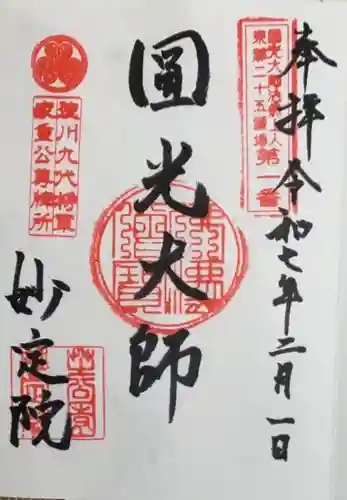 奉拝令和七年二月一日
圓光大師法然上人
東都二十五霊場
第一番
圓光大師
徳川九代将軍
家重公尊牌所
妙定院